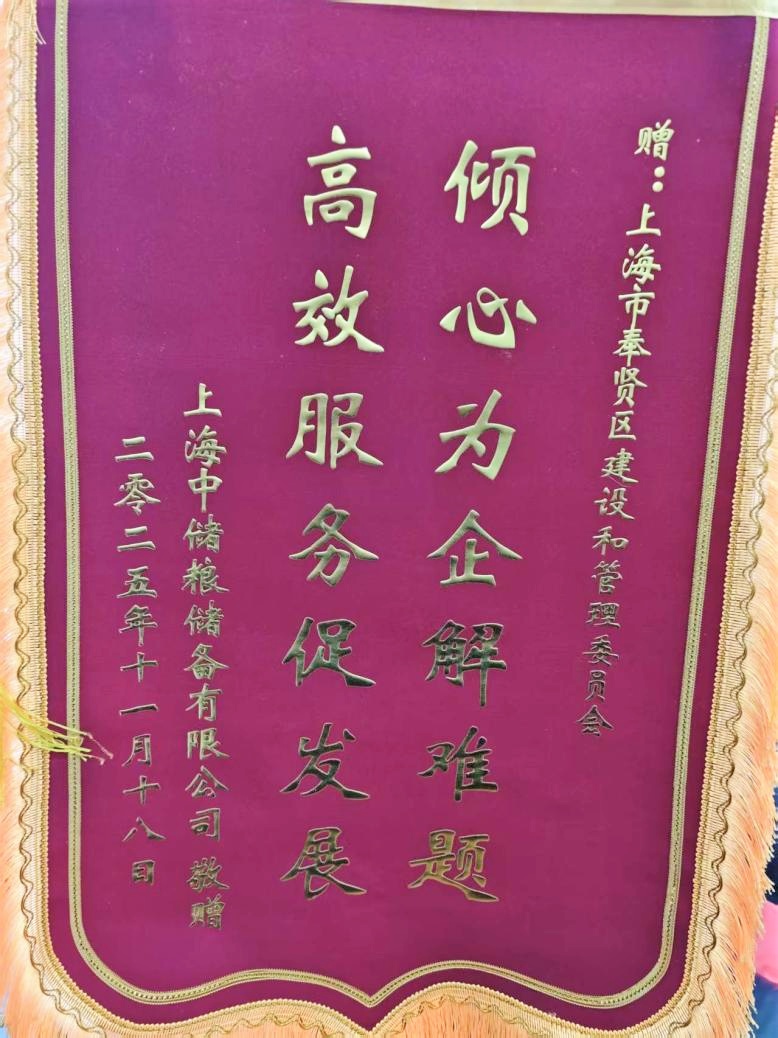 赠：上海市奉贤区建设和管理委员会
倾心为企解难题
高效服务促发展
上海中储粮储备有限公司 敬赠
二零二五年十一月十八日